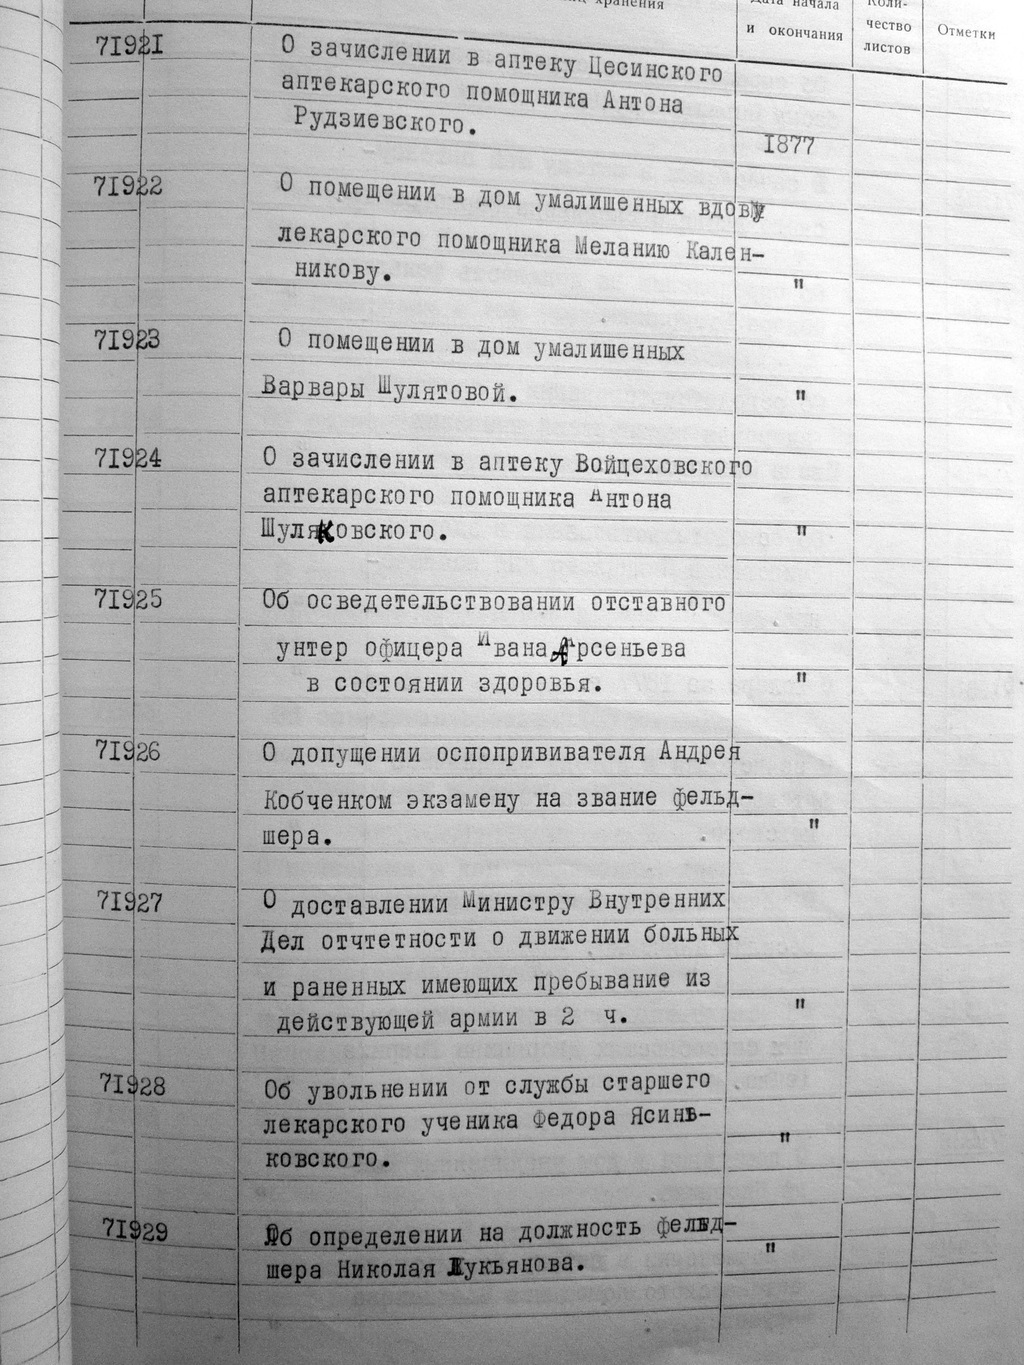 хранения
Дата начала
и окончания
Коли-
чество
листов
Отметки
71921
О зачислении в аптеку Цесинского
аптекарского помощника Антона
Рудзиевского.
1877
71922
О помещении в дом умалишенных вдову
лекарского помощника Меланию Кален-
никову.
"
71923
О помещении в дом умалишенных
Варвары Шулятовой.
"
71924
О зачислении в аптеку Войцеховского
аптекарского помощника Антона
Шуляковского.
"
71925
Об осведетельствовании отставного
унтер офицера Ивана Арсеньева
в состоянии здоровья.
"
71926
О допущении оспопрививателя Андрея
Кобченком экзамену на звание фельд-
шера.
"
71927
О доставлении Министру Внутренних
Дел отчтетности о движении больных
и раненных имеющих пребывание из
действующей армии в 2 ч.
"
71928
Об увольнении от службы старшего
лекарского ученика Федора Ясинь-
ковского.
"
71929
Об определении на должность фельд-
шера Николая Лукьянова.
"